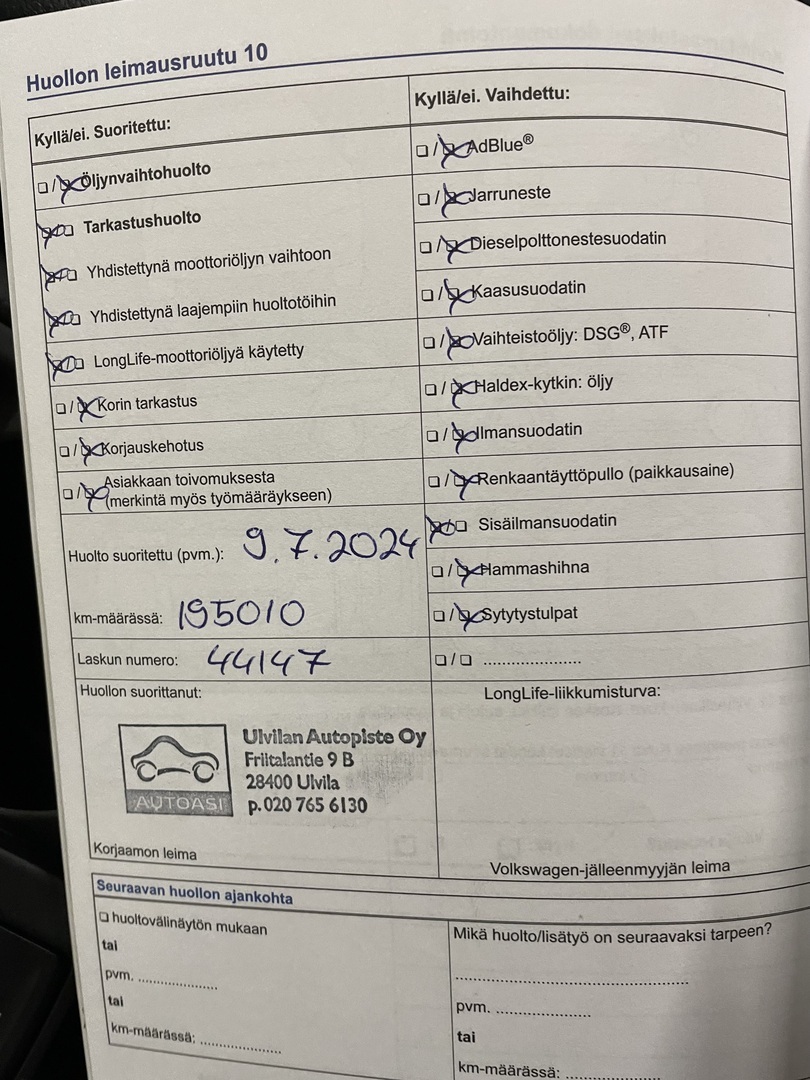 Huollon leimausruutu 10
Kyllä/ei. Suoritettu:
☐/☒ Öljynvaihtohuolto
☒/☐ Tarkastushuolto
☒/☐ Yhdistettynä moottoriöljyn vaihtoon
☒/☐ Yhdistettynä laajempiin huoltotöihin
☒/☐ LongLife-moottoriöljyä käytetty
☐/☒ Korin tarkastus
☐/☒ Korjauskehotus
☐/☒ Asiakkaan toivomuksesta
(merkintä myös työmääräykseen)
Huolto suoritettu (pvm.): 9.7.2024
km-määrässä: 195010
Laskun numero: 44147
Huollon suorittanut:
AUTOASI
Ulvilan Autopiste Oy
Friitalantie 9 B
28400 Ulvila
p. 020 765 6130
Korjaamon leima
Kyllä/ei. Vaihdettu:
☐/☒ AdBlue®
☐/☒ Jarruneste
☐/☒ Dieselpolttonestesuodatin
☐/☒ Kaasusuodatin
☐/☒ Vaihteistoöljy: DSG®, ATF
☐/☒ Haldex-kytkin: öljy
☐/☒ Ilmansuodatin
☐/☒ Renkaantäyttöpullo (paikkausaine)
☒/☐ Sisäilmansuodatin
☐/☒ Hammashihna
☐/☒ Sytytystulpat
☐/☐ ......................
LongLife-liikkumisturva:
Volkswagen-jälleenmyyjän leima
Seuraavan huollon ajankohta
☐ huoltovälinäytön mukaan
tai
pvm. ..................
tai
km-määrässä: ..................
Mikä huolto/lisätyö on seuraavaksi tarpeen?
..................................................
pvm. .....................
tai
km-määrässä: .....................